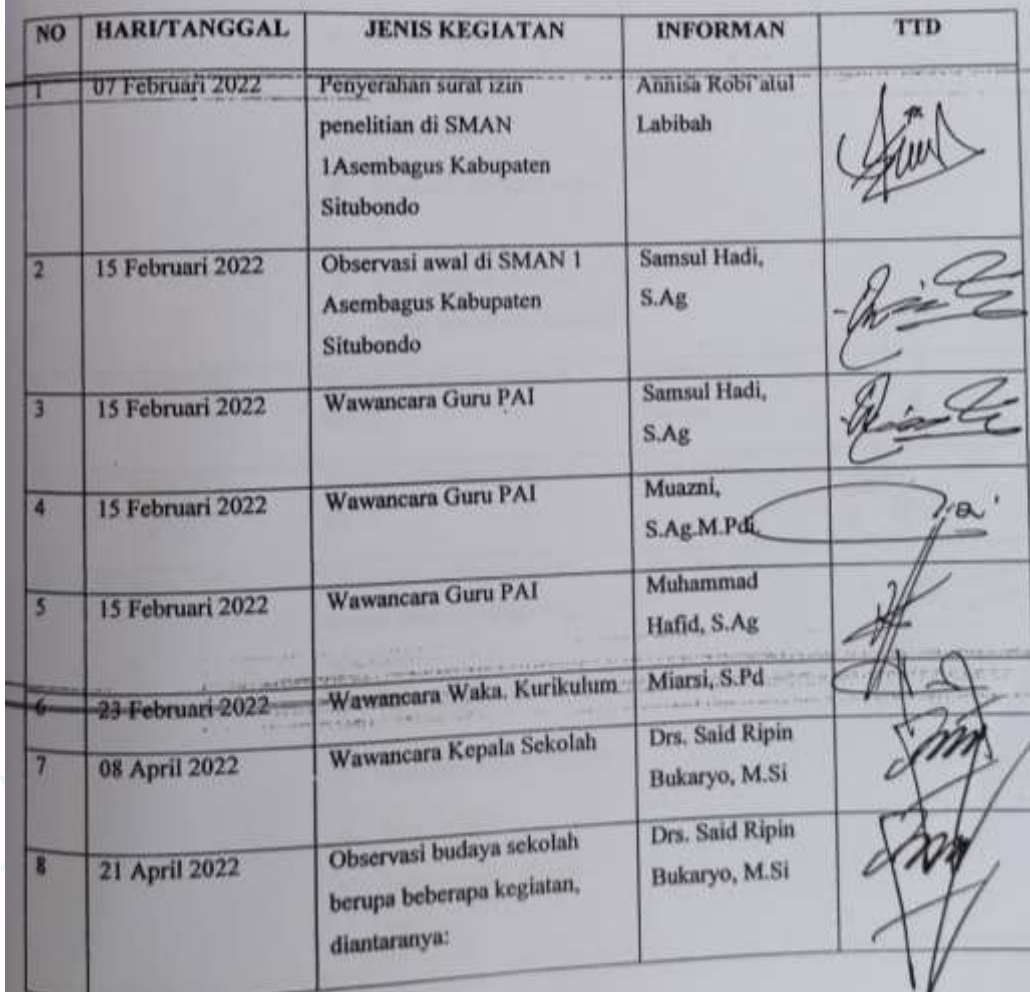 NO HARI/TANGGAL JENIS KEGIATAN INFORMAN TTD
1 07 Februari 2022 Penyerahan surat izin Annisa Robi'atul
penelitian di SMAN Labibah
1Asembagus Kabupaten
Situbondo
2 15 Februari 2022 Observasi awal di SMAN 1 Samsul Hadi,
Asembagus Kabupaten S.Ag
Situbondo
3 15 Februari 2022 Wawancara Guru PAI Samsul Hadi,
S.Ag
4 15 Februari 2022 Wawancara Guru PAI Muazni,
S.Ag.M.Pdi.
5 15 Februari 2022 Wawancara Guru PAI Muhammad
Hafid, S.Ag
6 23 Februari 2022 Wawancara Waka. Kurikulum Miarsi, S.Pd
7 08 April 2022 Wawancara Kepala Sekolah Drs. Said Ripin
Bukaryo, M.Si
8 21 April 2022 Observasi budaya sekolah Drs. Said Ripin
berupa beberapa kegiatan, Bukaryo, M.Si
diantaranya: